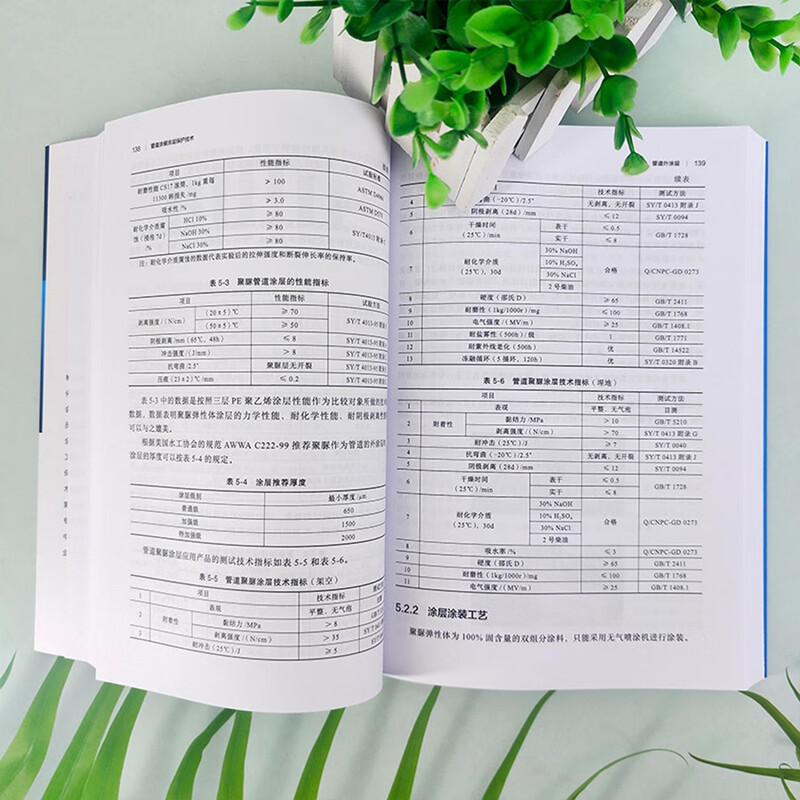 138 管道涂层保护技术
项目 性能指标 试验标准
耐磨性能 CS17滚筒，1kg重每 11300转损失/mg ＞100 ASTM D4060
吸水性/% ＞3.0 ASTM D570
耐化学介质腐蚀（浸泡7d）/%
HCl 10% ≥80
NaOH 30% ≥80 SY/T4013附录
NaCl 30% ≥80
注：耐化学介质腐蚀的数据代表实验后的拉伸强度和断裂伸长率的保持率。
表 5-3 聚脲管道涂层的性能指标
项目 性能指标 试验方法
剥离强度/(N/cm) （20±5）℃ ≥70 SY/T 4013-95
（50±5）℃ ≥50 SY/T 4013-95
阴极剥离/mm（65℃，48h） ≤8 SY/T 4013-95
冲击强度/(J/mm) ＞8 SY/T 4013-95
抗弯曲/2.5° 聚脲层无开裂 SY/T 4013-95
压痕（23±2）℃/mm ≤0.2 SY/T 4013-95
表 5-3 中的数据是按照三层 PE 聚乙烯涂层性能作为比较对象所做的
数据，数据表明聚脲弹性体涂层的力学性能、耐化学性能、耐阴极剥离性
可以与之媲美。
根据美国水工协会的规范 AWWA C222-99 推荐聚脲作为管道的外涂
涂层的厚度可以按表 5-4 的规定。
表 5-4 涂层推荐厚度
涂层级别 最小厚度/μm
普通级 650
加强级 1500
特加强级 2000
管道聚脲涂层应用产品的测试技术指标如表 5-5 和表 5-6。
表 5-5 管道聚脲涂层技术指标（架空）
项目 技术指标
1 表观 平整、无气泡
2 附着性 黏结力/MPa ＞8
剥离强度/(N/cm) ＞35
3 耐冲击（25℃）/J ≥5
管道外涂层 139
续表
项目 技术指标 测试方法
4 弯曲（-20℃）/2.5° 无剥离、无开裂 SY/T 0413 附录 J
5 阴极剥离（28d）/mm ≤12 SY/T 0094
6 干燥时间（25℃）/min 表干 ≤0.5 GB/T 1728
实干 ≤8
7 耐化学介质（25℃），30d 30% NaOH 合格 Q/CNPC-GD 0273
10% H₂SO₄
30% NaCl
2号柴油
8 硬度（邵氏D） ≥65 GB/T 2411
9 耐磨性（1kg/1000r）/mg ≤100 GB/T 1768
10 电气强度/(MV/m) ≥25 GB/T 1408.1
11 耐盐雾性（500h）/级 1 GB/T 1771
12 耐紫外线老化（500h） 优 GB/T 14522
13 冻融循环（5循环，120h） 优 SY/T 0320 附录 B
表 5-6 管道聚脲涂层技术指标（埋地）
项目 技术指标 测试方法
1 表观 平整、无气泡 目测
2 附着性 黏结力/MPa ＞10 GB/T 5210
剥离强度/(N/cm) ＞70 SY/T 0413 附录 G
3 耐冲击（25℃）/J ＞7 SY/T 0040
4 抗弯曲（-20℃）/2.5° 无剥离、无开裂 SY/T 0413 附录 J
5 阴极剥离（28d）/mm ≤12 SY/T 0094
6 干燥时间（25℃）/min 表干 ≤0.5 GB/T 1728
实干 ≤8
7 耐化学介质（25℃），30d 30% NaOH 合格 Q/CNPC-GD 0273
10% H₂SO₄
30% NaCl
2号柴油
8 吸水率/% ≤3 Q/CNPC-GD 0273
9 硬度（邵氏D） ≥65 GB/T 2411
10 耐磨性（1kg/1000r）/mg ≤100 GB/T 1768
11 电气强度/(MV/m) ≥25 GB/T 1408.1
5.2.2 涂层涂装工艺
聚脲弹性体为 100% 固含量的双组分涂料，只能采用无气喷涂机进行涂装。